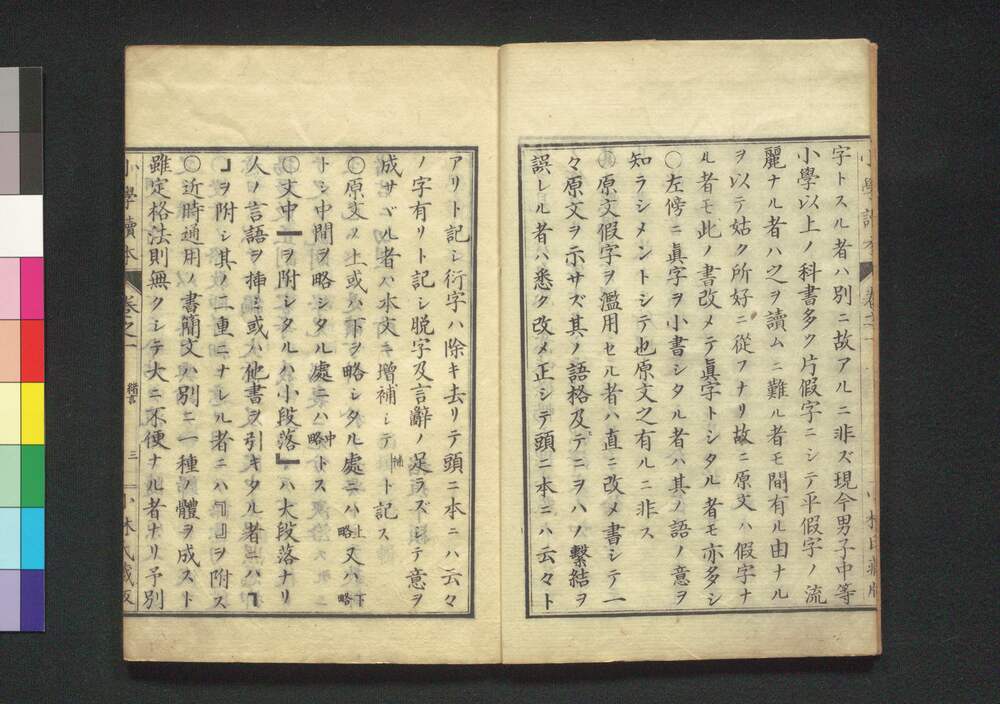 字トスル者ハ別ニ故アルニ非ズ現今男子中等
小學以上ノ科書多ク片假字ニシテ平假字ノ流
麗ナル者ハ之ヲ讀ムニ難ル者モ間有ル由ナル
ヲ以テ姑ク所好ニ從フナリ故ニ原文ハ假字ナ
ル者モ此ノ書改メテ真字トシタル者モ亦多シ
○左傍ニ真字ヲ小書シタル者ハ其ノ語ノ意ヲ
知ラシメントシテ也原文之有ルニ非ス
○原文假字ヲ濫用セル者ハ直ニ改メ書シテ一
々原文ヲ示サズ其ノ語格及テニヲハノ繫結ヲ
誤レル者ハ悉ク改メ正シテ頭ニ本ニハ云々ト
アリト記シ衍字ハ除キ去リテ頭ニ本ニハ云々
ノ字有リト記シ脱字及言辭ノ足ラズシテ意ヲ
成サヾル者ハ本文ニ增補シテ補ト記ス
○原文ノ上或ハ下ヲ略シタル處ニハ上略又ハ下略
トシ中間ヲ略シタル處ニハ中略トス
○文中ーヲ附シタルハ小段落』ハ大段落ナリ
人ノ言語ヲ揷ミ或ハ他書ヲ引キタル者ニハ「
」ヲ附シ其ノ二重ニナレル者ニハ『』ヲ附ス
○近時通用ノ書簡文ハ別ニ一種ノ體ヲ成スト
雖定格法則無クシテ大ニ不便ナル者ナリ予別
小學讀本 卷之一 緒言 三 小林氏藏版